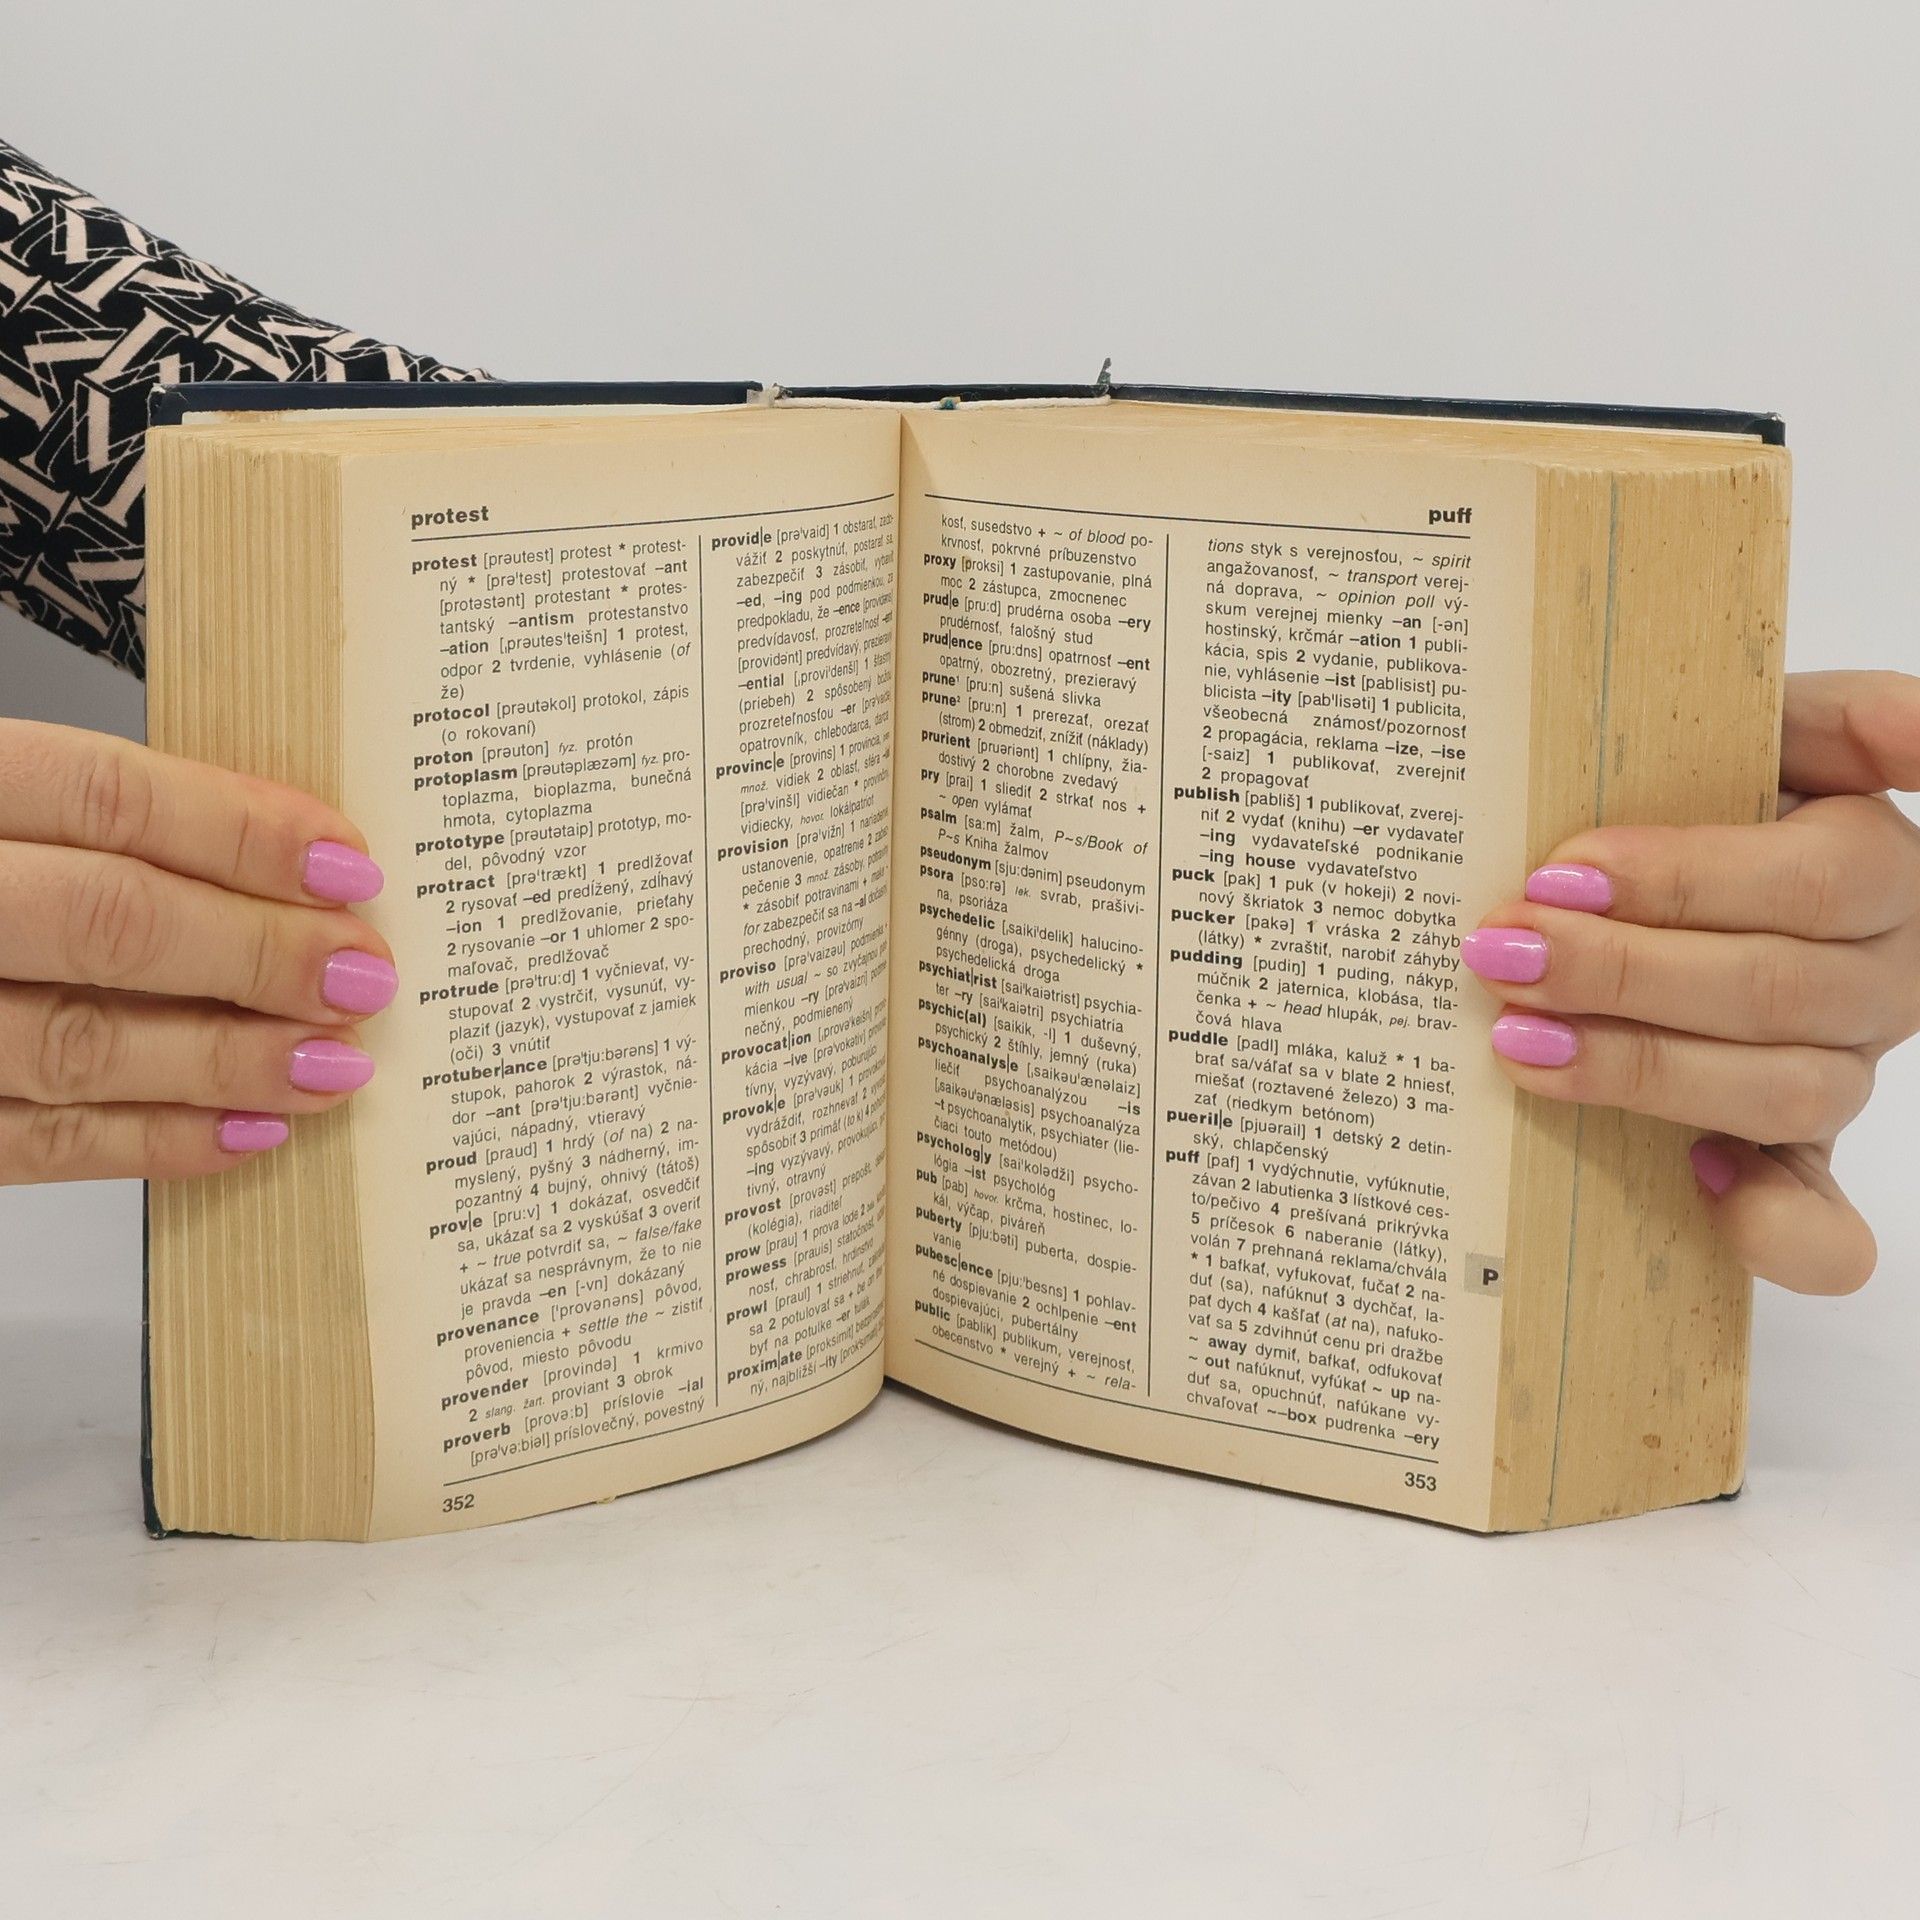 protest
protest [prəutest] protest * protest-
ný * [prə'test] protestovať –ant
[protəstənt] protestant * protes-
tantský –antism protestanstvo
–ation [ˌprəutes'teišn] 1 protest,
odpor 2 tvrdenie, vyhlásenie (of
že)
protocol [prəutəkol] protokol, zápis
(o rokovaní)
proton [prəuton] fyz. protón
protoplasm [prəutəplæzəm] fyz. pro-
toplazma, bioplazma, bunečná
hmota, cytoplazma
prototype [prəutətaip] prototyp, mo-
del, pôvodný vzor
protract [prə'trækt] 1 predlžovať
2 rysovať –ed predĺžený, zdĺhavý
–ion 1 predlžovanie, prieťahy
2 rysovanie –or 1 uhlomer 2 spo-
maľovač, predlžovač
protrude [prə'tru:d] 1 vyčnievať, vy-
stupovať 2 vystrčiť, vysunúť, vy-
plaziť (jazyk), vystupovať z jamiek
(oči) 3 vnútiť
protuber|ance [prə'tju:bərəns] 1 vý-
stupok, pahorok 2 výrastok, ná-
dor –ant [prə'tju:bərənt] vyčnie-
vajúci, nápadný, vtieravý
proud [praud] 1 hrdý (of na) 2 na-
myslený, pyšný 3 nádherný, im-
pozantný 4 bujný, ohnivý (tátoš)
prov|e [pru:v] 1 dokázať, osvedčiť
sa, ukázať sa 2 vyskúšať 3 overiť
+ ~ true potvrdiť sa, ~ false/fake
ukázať sa nesprávnym, že to nie
je pravda –en [-vn] dokázaný
provenance ['provənəns] pôvod,
proveniencia + settle the ~ zistiť
pôvod, miesto pôvodu
provender [provində] 1 krmivo
2 slang. žart. proviant 3 obrok
proverb [provə:b] príslovie –ial
[prə'və:biəl] príslovečný, povestný
352
provid|e [prə'vaid] 1 obstarať, zado-
vážiť 2 poskytnúť, postarať sa,
zabezpečiť 3 zásobiť, vybaviť
–ed, –ing pod podmienkou, za
predpokladu, že –ence [providəns]
predvídavosť, prozreteľnosť –ent
[providənt] predvídavý, prezieravý
–ential [ˌprovi'denšl] 1 šťastný
(priebeh) 2 spôsobený božou
prozreteľnosťou –er [prə'vaidə]
opatrovník, chlebodarca, darca
provinc|e [provins] 1 provincia,
množ. vidiek 2 oblasť, sféra –ial
[prə'vinšl] vidiečan * provinčný,
vidiecky, hovor. lokálpatriot
provision [prə'vižn] 1 nariadenie,
ustanovenie, opatrenie 2 zabez-
pečenie 3 množ. zásoby, potraviny
* zásobiť potravinami + make ~
for zabezpečiť sa na –al dočasný,
prechodný, provizórny
proviso [prə'vaizəu] podmienka +
with usual ~ so zvyčajnou pod-
mienkou –ry [prə'vaizri] podmie-
nečný, podmienený
provocat|ion [ˌprovə'keišn] provo-
kácia –ive [prə'vokətiv] provoka-
tívny, vyzývavý, poburujúci
provok|e [prə'vəuk] 1 provokovať,
vydráždiť, rozhnevať 2 vyvolať,
spôsobiť 3 primäť (to k) 4
–ing vyzývavý, provokujúci,
tivný, otravný
provost [provəst] prepošt,
(kolégia), riaditeľ
prow [prau] 1 prova lode 2
prowess [prauis] statočnosť,
nosť, chrabrosť, hrdinstvo
prowl [praul] 1 striehnuť,
sa 2 potulovať sa + be on the
byť na potulke –er tulák
proxim|ate [proksimit] bezprostred-
ný, najbližší –ity [prok'siməti]
puff
kosť, susedstvo + ~ of blood po-
krvnosť, pokrvné príbuzenstvo
proxy [proksi] 1 zastupovanie, plná
moc 2 zástupca, zmocnenec
prud|e [pru:d] prudérna osoba –ery
prudérnosť, falošný stud
prud|ence [pru:dns] opatrnosť –ent
opatrný, obozretný, prezieravý
prune¹ [pru:n] sušená slivka
prune² [pru:n] 1 prerezať, orezať
(strom) 2 obmedziť, znížiť (náklady)
prurient [pruəriənt] 1 chlípny, žia-
dostivý 2 chorobne zvedavý
pry [prai] 1 sliediť 2 strkať nos +
~ open vylámať
psalm [sa:m] žalm, P~s/Book of
P~s Kniha žalmov
pseudonym [sju:dənim] pseudonym
psora [pso:rə] lek. svrab, prašivi-
na, psoriáza
psychedelic [ˌsaiki'delik] halucino-
génny (droga), psychedelický *
psychedelická droga
psychiat|rist [sai'kaiətrist] psychia-
ter –ry [sai'kaiətri] psychiatria
psychic(al) [saikik, -l] 1 duševný,
psychický 2 štíhly, jemný (ruka)
psychoanalys|e [ˌsaikəu'ænəlaiz]
liečiť psychoanalýzou –is
[ˌsaikəu'ənæləsis] psychoanalýza
–t psychoanalytik, psychiater (lie-
čiaci touto metódou)
psycholog|y [sai'kolədži] psycho-
lógia –ist psychológ
pub [pab] hovor. krčma, hostinec, lo-
kál, výčap, piváreň
puberty [pju:bəti] puberta, dospie-
vanie
pubesc|ence [pju:'besns] 1 pohlav-
né dospievanie 2 ochlpenie –ent
dospievajúci, pubertálny
public [pablik] publikum, verejnosť,
obecenstvo * verejný + ~ rela-
tions styk s verejnosťou, ~ spirit
angažovanosť, ~ transport verej-
ná doprava, ~ opinion poll vý-
skum verejnej mienky –an [-ən]
hostinský, krčmár –ation 1 publi-
kácia, spis 2 vydanie, publikova-
nie, vyhlásenie –ist [pablisist] pu-
blicista –ity [pab'lisəti] 1 publicita,
všeobecná známosť/pozornosť
2 propagácia, reklama –ize, –ise
[-saiz] 1 publikovať, zverejniť
2 propagovať
publish [pabliš] 1 publikovať, zverej-
niť 2 vydať (knihu) –er vydavateľ
–ing vydavateľské podnikanie
–ing house vydavateľstvo
puck [pak] 1 puk (v hokeji) 2 novi-
nový škriatok 3 nemoc dobytka
pucker [pakə] 1 vráska 2 záhyb
(látky) * zvraštiť, narobiť záhyby
pudding [pudiŋ] 1 puding, nákyp,
múčnik 2 jaternica, klobása, tla-
čenka + ~ head hlupák, pej. brav-
čová hlava
puddle [padl] mláka, kaluž * 1 ba-
brať sa/váľať sa v blate 2 hniesť,
miešať (roztavené železo) 3 ma-
zať (riedkym betónom)
pueril|e [pjuərail] 1 detský 2 detin-
ský, chlapčenský
puff [paf] 1 vydýchnutie, vyfúknutie,
závan 2 labutienka 3 lístkové ces-
to/pečivo 4 prešívaná prikrývka
5 príčesok 6 naberanie (látky),
volán 7 prehnaná reklama/chvála
* 1 bafkať, vyfukovať, fučať 2 na-
duť (sa), nafúknuť 3 dychčať, la-
pať dych 4 kašľať (at na), nafuko-
vať sa 5 zdvihnúť cenu pri dražbe
~ away dymiť, bafkať, odfukovať
~ out nafúknuť, vyfúkať ~ up na-
duť sa, opuchnúť, nafúkane vy-
chvaľovať ~–box pudrenka –ery
P
353